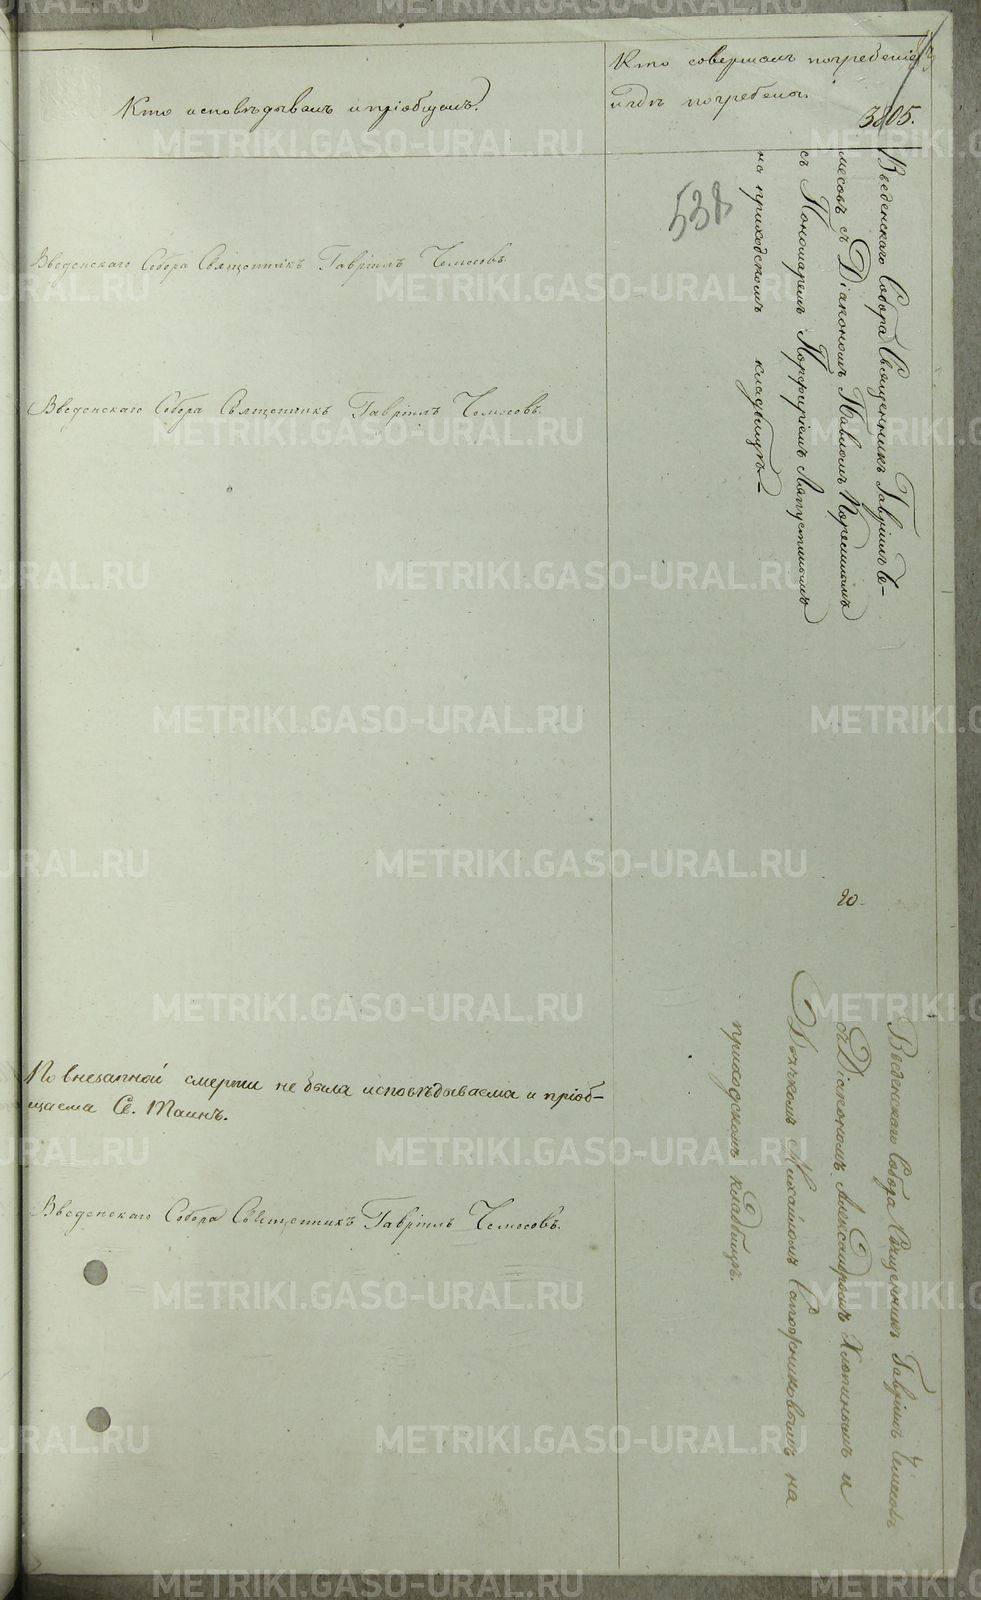 Кто исповѣдывалъ и пріобщалъ.
Кто совершалъ погребеніе
и гдѣ погребены.
3805.
538
Введенскаго Собора Священникъ Гавріилъ Чемесовъ
Введенскаго Собора Священникъ Гавріилъ Чемесовъ.
Введенскаго Собора Священникъ Гавріилъ Че-
месовъ съ Діакономъ Павломъ
съ Пономаремъ Порфиріемъ Ляпустинымъ
на приходскомъ кладбищѣ
20
По внезапной смерти не была исповѣдываема и пріоб-
щаема Св. Таинъ.
Введенскаго Собора Священникъ Гавріилъ Чемесовъ.
Введенскаго Собора Священникъ Гавріилъ Чемесовъ
съ Діакономъ Александромъ Хлопинымъ и
Дьячкомъ Михаиломъ Сапожниковымъ на
приходскомъ кладбищѣ.
METRIKI.GASO-URAL.RU